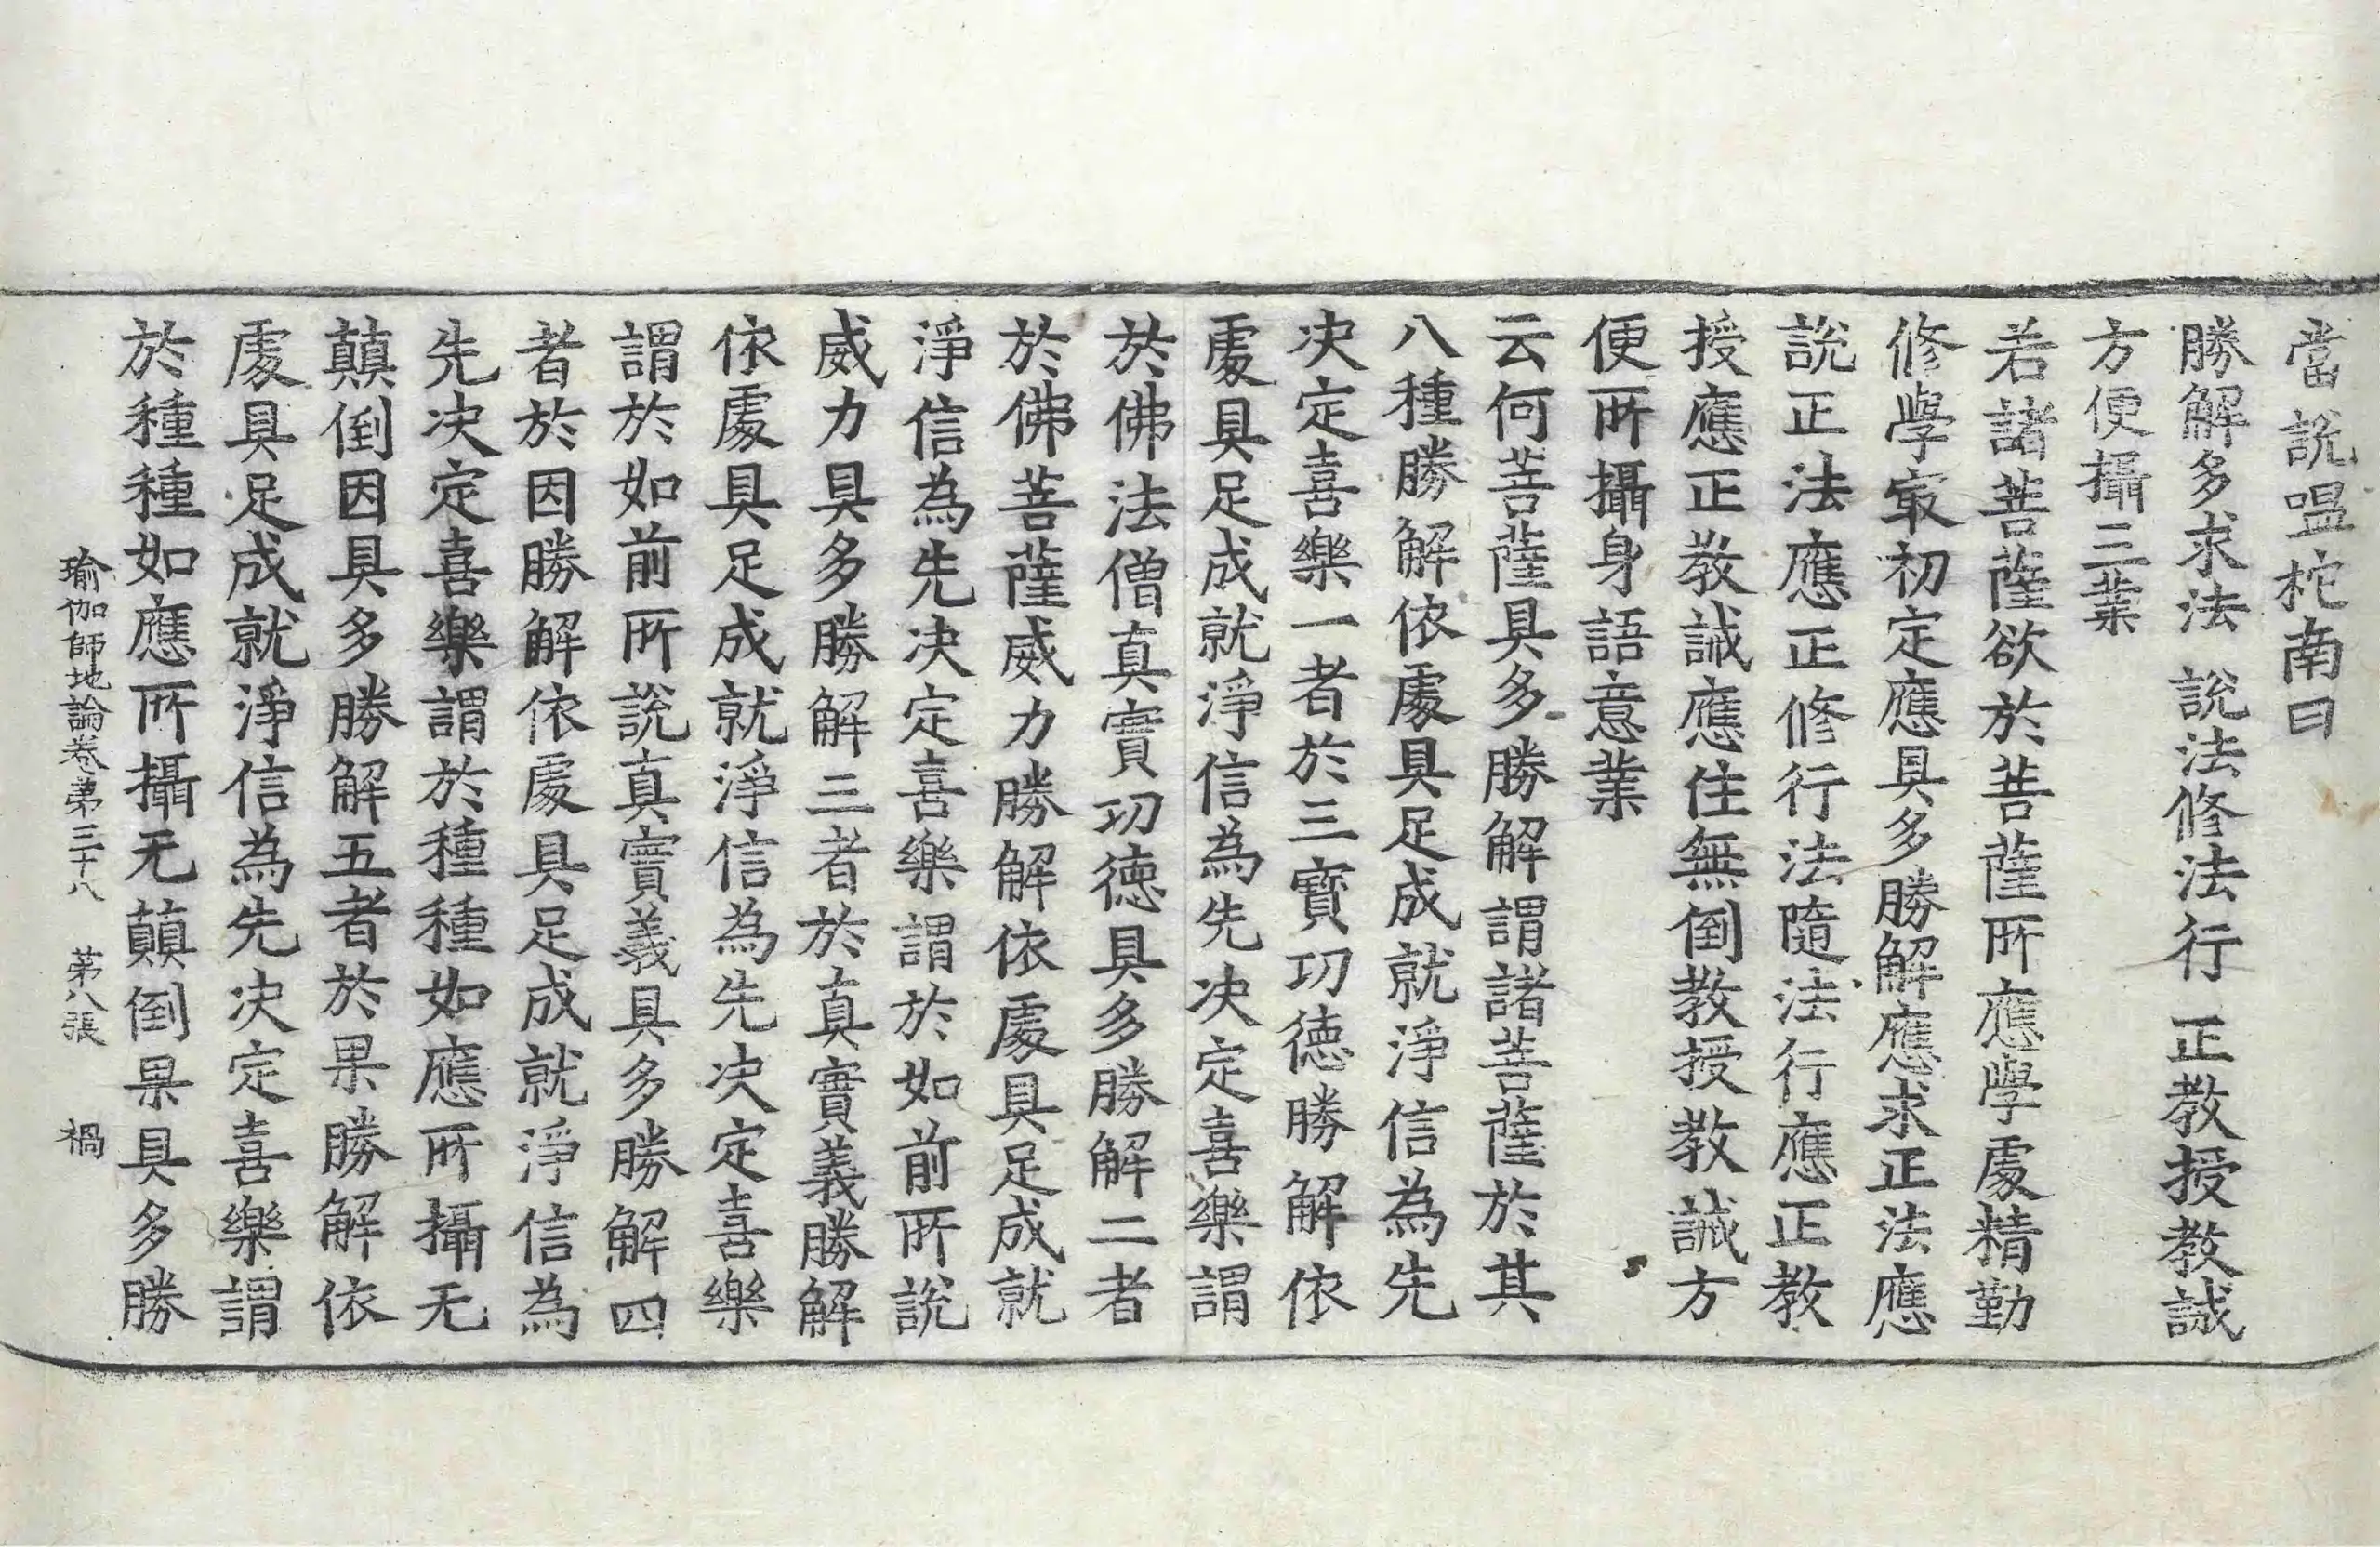 當說嗢柁南曰
勝解多求法 說法修法行 正教授教誡
方便攝三業
若諸菩薩欲於菩薩所應學處精勤
修學冣初定應具多勝解應求正法應
說正法應正修行法隨法行應正教
授應正教誡應住無倒教授教誡方
便所攝身語意業
云何菩薩具多勝解謂諸菩薩於其
八種勝解依處具足成就淨信為先
决定喜樂一者於三寶功德勝解依
處具足成就淨信為先决定喜樂謂
於佛法僧真實功德具多勝解二者
於佛菩薩威力勝解依處具足成就
淨信為先决定喜樂謂於如前所說
威力具多勝解三者於真實義勝解
依處具足成就淨信為先决定喜樂
謂於如前所說真實義具多勝解四
者於因勝解依處具足成就淨信為
先决定喜樂謂於種種如應所攝无
顛倒因具多勝解五者於果勝解依
處具足成就淨信為先决定喜樂謂
於種種如應所攝无顛倒果具多勝
瑜伽師地論卷第三十八 第八張 禍